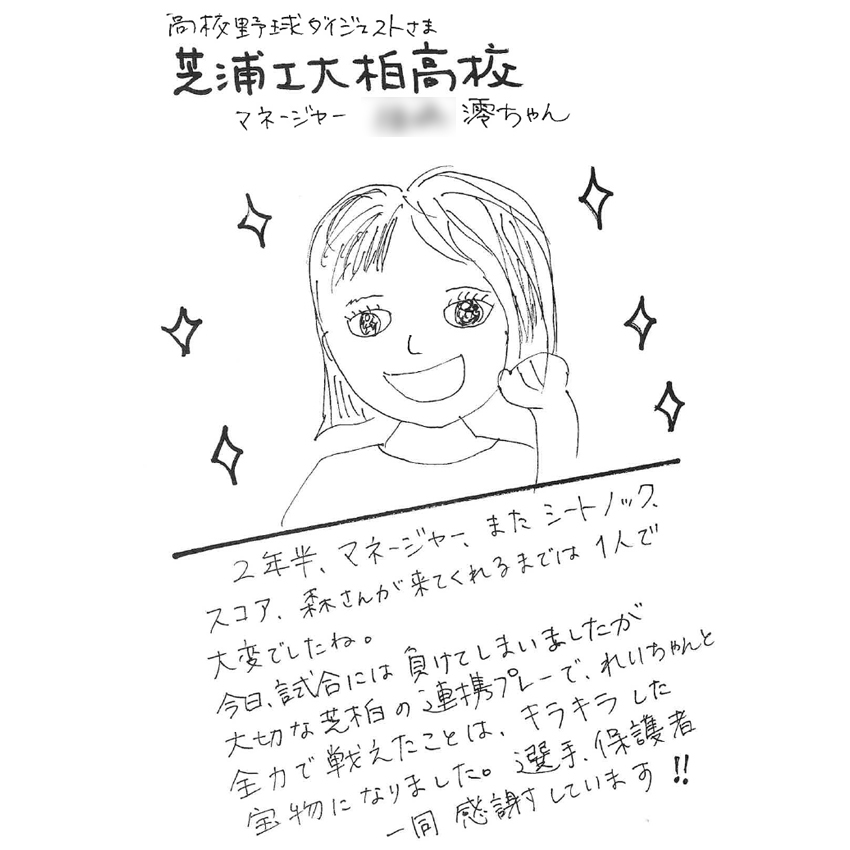 高校野球ダイジェストさま
芝浦工大柏高校
マネージャー 澪ちゃん
2年半、マネージャー、また シートノック、
スコア、森さんが来てくれるまでは 1人で
大変でしたね。
今日、試合には 負けてしまいましたが
大切な芝柏の連携プレーで、れいちゃんと
全力で戦えたことは、キラキラした
宝物になりました。選手、保護者
一同 感謝しています!!